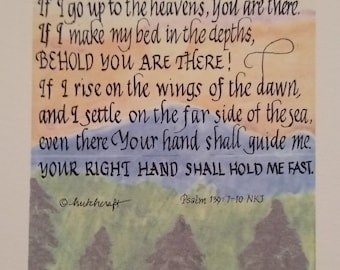 If I go up to the heavens, You are there.
If I make my bed in the depths,
BEHOLD YOU ARE THERE!
If I rise on the wings of the dawn,
and I settle on the far side of the sea,
even there Your hand shall guide me.
YOUR RIGHT HAND SHALL HOLD ME FAST.
© hutchcraft Psalm 139:7-10 NKJ